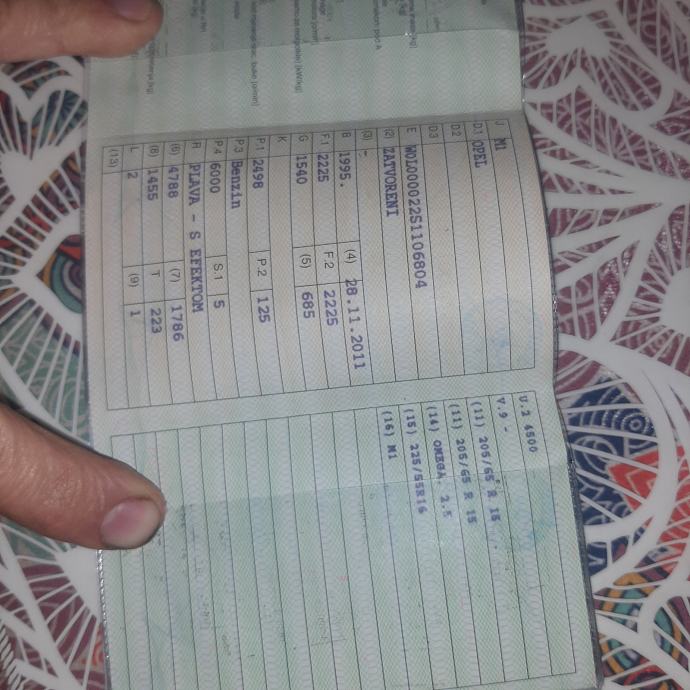 J M1
D.1 OPEL
D.2
D.3
E W0L000022S1106804
(2) ZATVORENI
(3) -
B 1995. (4) 28.11.2011
F.1 2225 F.2 2225
G 1540 (5) 685
K
P.1 2498 P.2 125
P.3 Benzin
P.4 6000 S.1 5
R PLAVA - S EFEKTOM
(6) 4788 (7) 1786
(8) 1455 T 223
L 2 (9) 1
(13)
U.2 4500
V.9 -
(11) 205/65 R 15
(11) 205/65 R 15
(14) OMEGA, 2.5
(15) 225/55R16
(16) M1